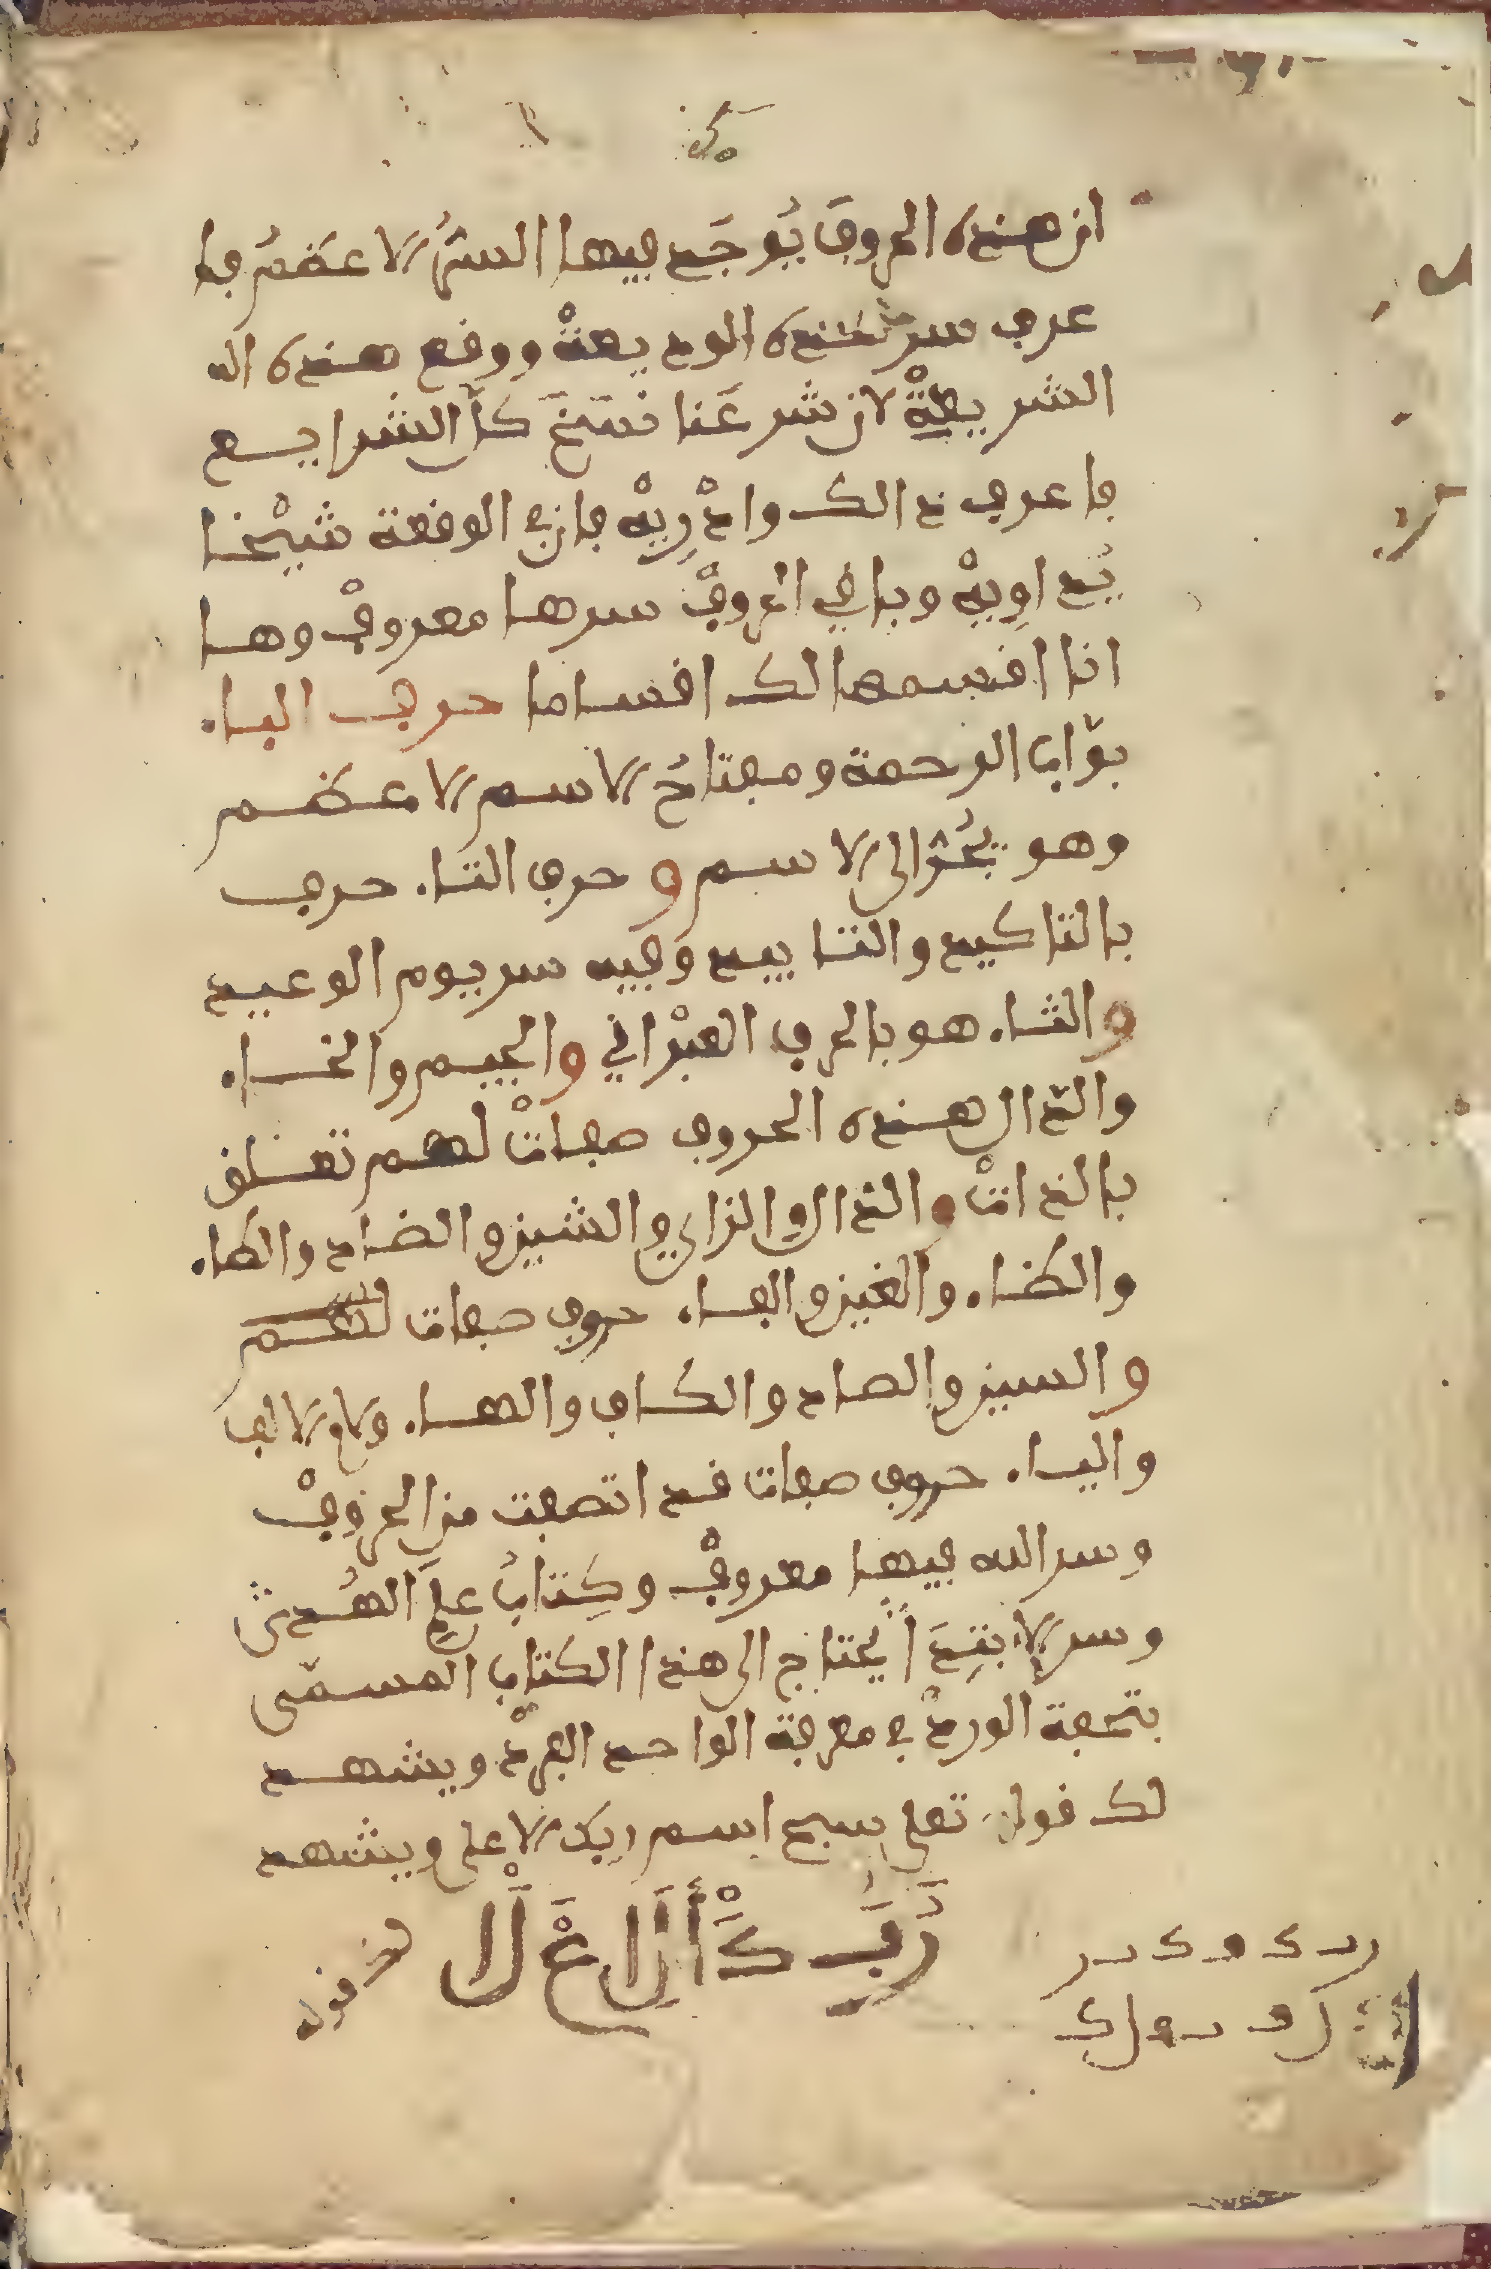 ان هذه الحروف يوجد فيها السر الاعظم فا
عرف سر هذه الوديعة ووقع هذه الـ
الشريعة لان شرعنا نسخ كل الشرايع
فاعرف ذالك وادريه فان في الوقعة شيخا
يداويه وباقي الحروف سرها معروف وها
انا اقسمها لك اقساما حرف الباء
بواب الرحمة ومفتاح الاسم الاعظم
وهو الى الاسم وحرف التاء حرف
بالتاكيد والتابيد وفيه سر يوم الوعيد
والثاء هو بالحرف العبراني والجيم والخاء
والدال هذه الحروف صفات لهم تعلق
بالذات والذال والزاي والشين والضاد والطاء
والظاء والغين والفاء حروف صفات
والسين والصاد والكاف والهاء ولام الالف
والياء حروف صفات قد اتصفت من الحروف
وسر الله فيها معروف وكتاب على الهدى
وسر لا يحتاج الى هذا الكتاب المسمى
بتحفة الورد في معرفة الواحد الفرد ويشهد
لك قوله تعلى سبح اسم ربك الاعلى ويشهد
رَبَّكَ أَلَاعْلَا